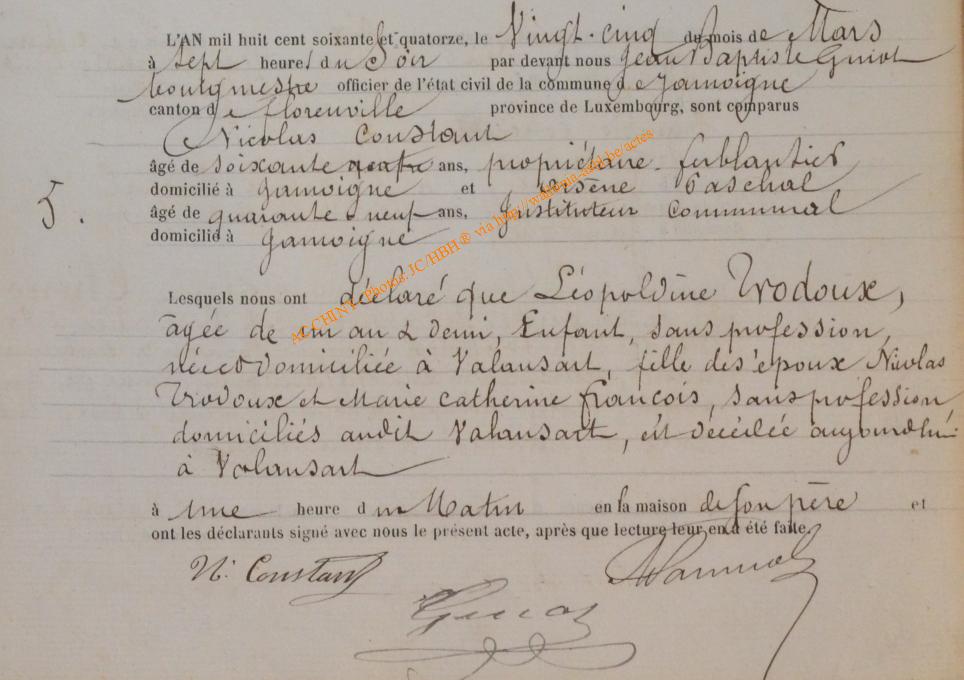 L'AN mil huit cent soixante et quatorze, le Vingt-cinq du mois de Mars
à sept heures du Soir par devant nous Jean Baptiste Guiot
bourgmestre officier de l'état civil de la commune de Jamoigne
canton de florenville province de Luxembourg, sont comparus
Nicolas Constant
âgé de soixante quatre ans, propriétaire - ferblantier
domicilié à Jamoigne et Arsène Paschal
5.
âgé de quarante neuf ans, Instituteur Communal
domicilié à Jamoigne
Lesquels nous ont déclaré que Léopoldine Trodoux,
âgée de un an & demi, Enfant, sans profession,
née et domiciliée à Valansart, fille des époux Nicolas
Trodoux et Marie Catherine françois, sans profession
domiciliés audit Valansart, est décédée aujourdhui
à Valansart
à une heure du Matin en la maison de son père et
ont les déclarants signé avec nous le présent acte, après que lecture leur en a été faite.
N. Constant
ALCHINY - Photos: JC/HBH® via http://wathelin-said.be/actes